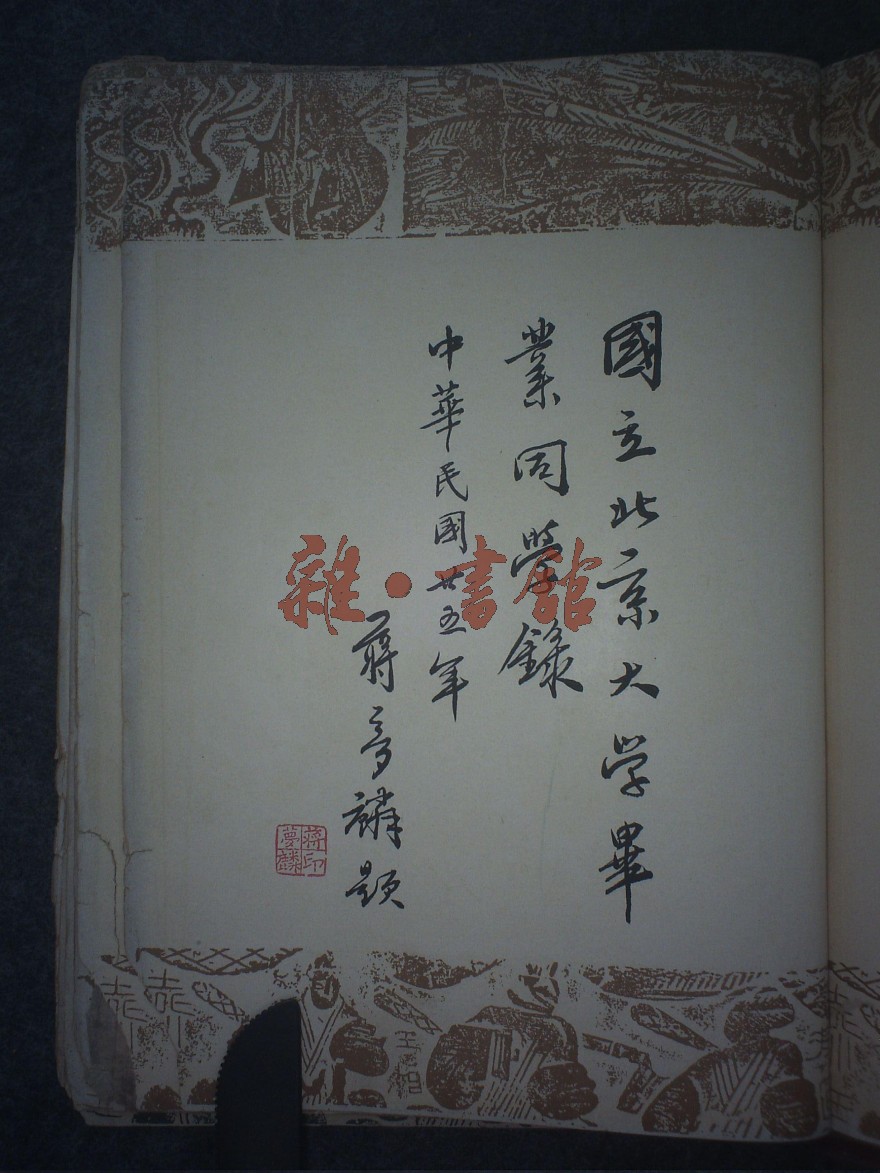 國立北京大学畢
業同學錄
中華民國廿五年
蔣夢麟題
蔣印
夢麟
雜·書館